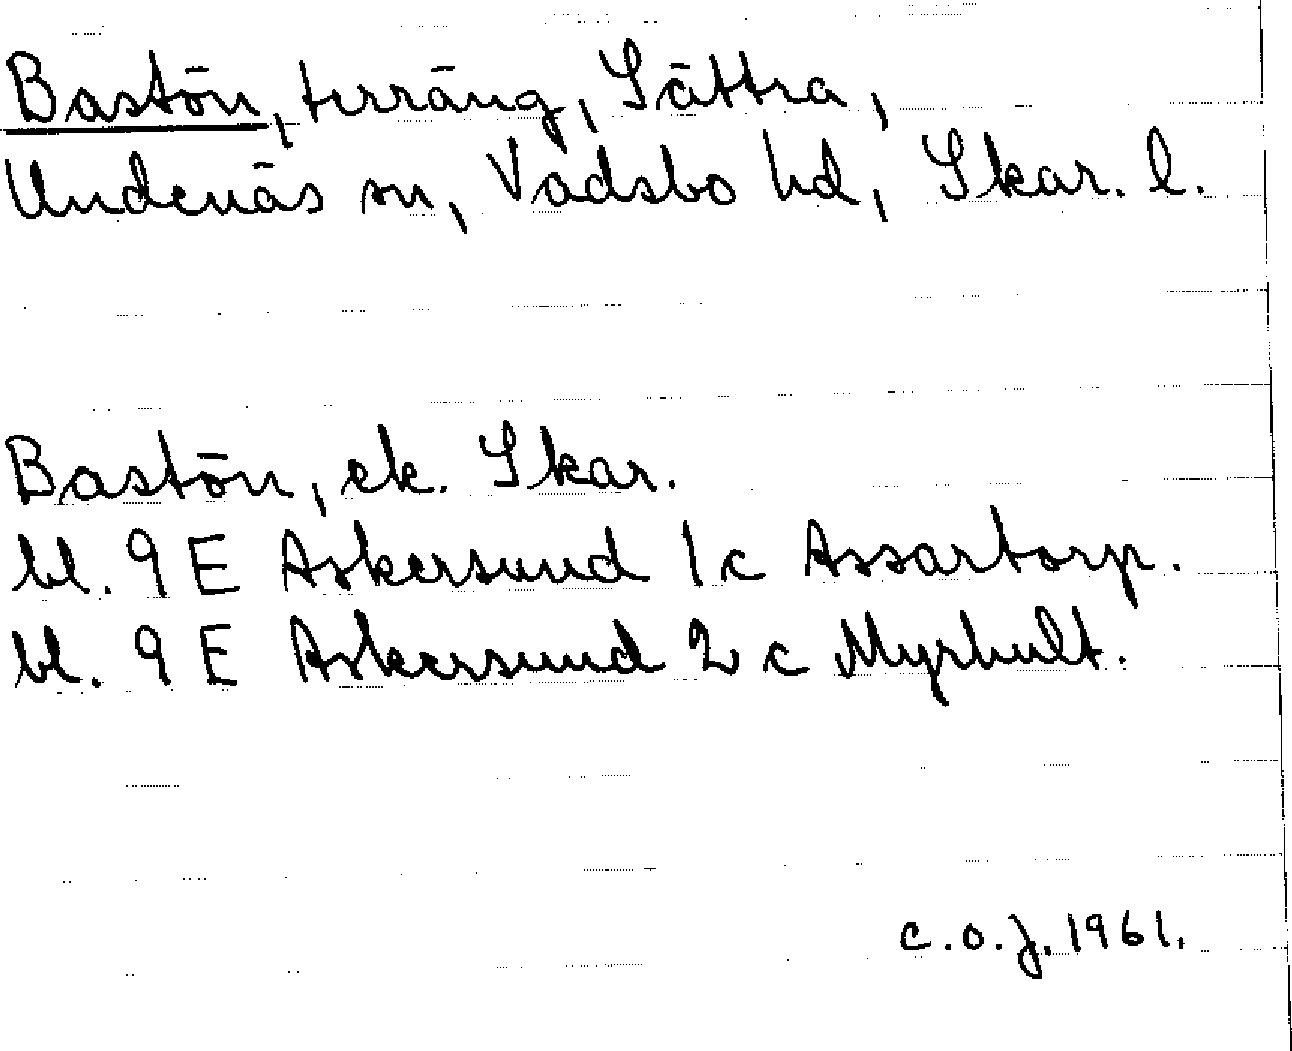 Bastön, terräng, Sättra,
Undenäs sn, Vadsbo hd, Skar. l.
Bastön, ek. Skar.
bl. 9 E Askersund 1 c Assartorp.
bl. 9 E Askersund 2 c Myrhult.
C.O.J. 1961.